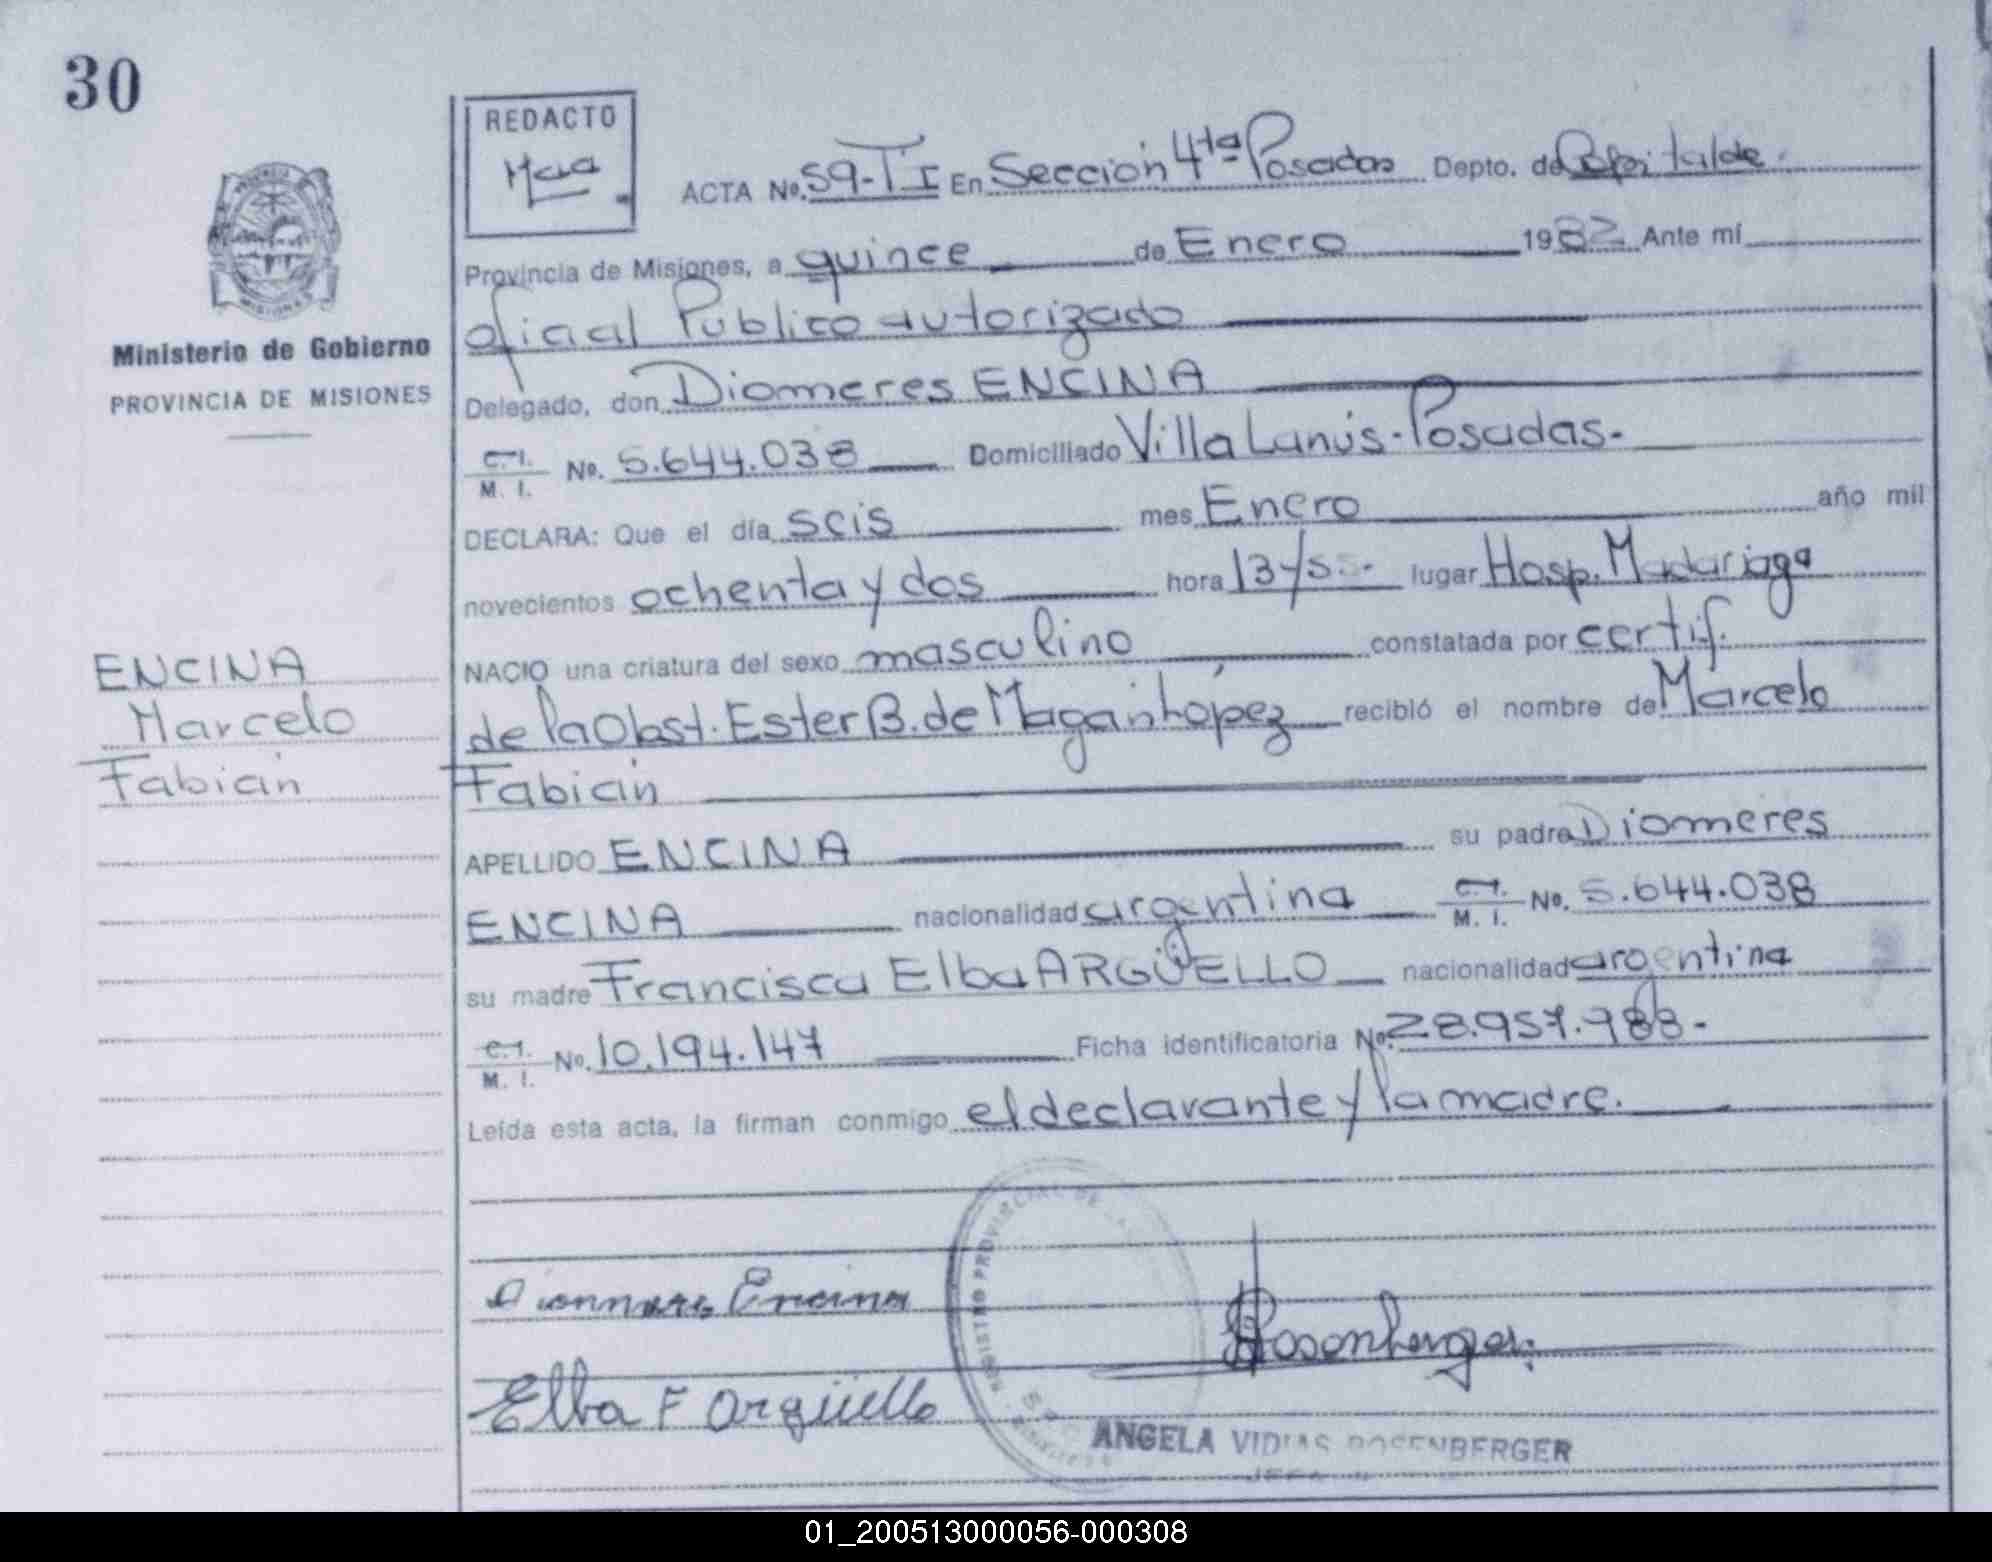 30
REDACTO
ACTA No. 59-TI En Sección 4ta Posadas Depto. de Capital de
Provincia de Misiones, a quince de Enero 1982 Ante mí
oficial Público autorizado
Ministerio de Gobierno
PROVINCIA DE MISIONES
Delegado, don Diomeres ENCINA
C.I. M. I. No. 5.644.038 Domiciliado Villa Lanús - Posadas.
DECLARA: Que el día seis mes Enero año mil
novecientos ochenta y dos hora 13 y lugar Hosp. Madariaga
ENCINA
Marcelo
Fabián
NACIO una criatura del sexo masculino constatada por certif.
de la Obst. Ester B. de Magán López recibió el nombre de Marcelo
Fabián
APELLIDO ENCINA su padre Diomeres
ENCINA nacionalidad argentina C.I. M. I. No. 5.644.038
su madre Francisca Elba ARGÜELLO nacionalidad argentina
C.I. M. I. No. 10.194.147 Ficha identificatoria No. 28.957.988-
Leída esta acta, la firman conmigo el declarante y la madre.
REGISTRO PROVINCIAL DE
Encina
Rosenberger
Elba F Argüello
ANGELA ROSENBERGER
01_200513000056-000308